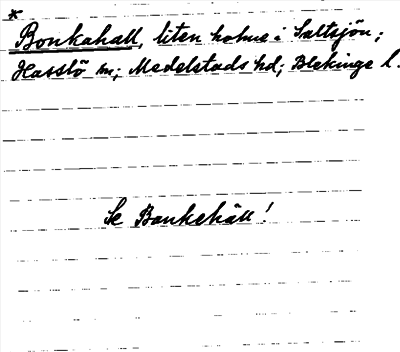 *
Bonkahall, liten holme i Saltsjön;
Hasslö sn; Medelstads hd; Blekinge l.
Se Bonkehäll!